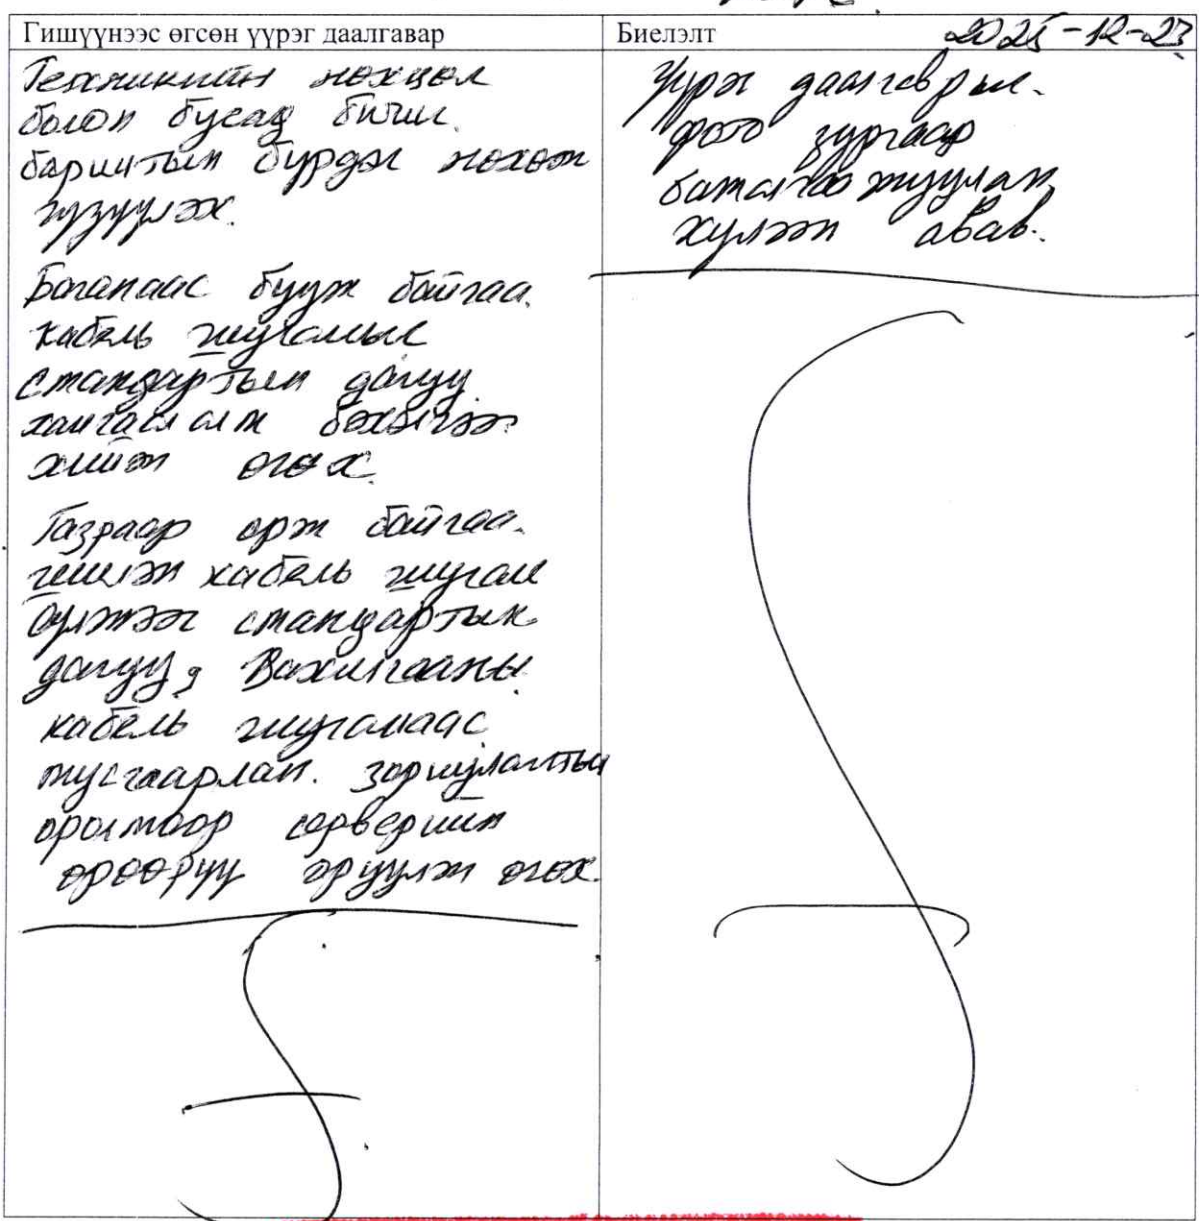 Гишүүнээс өгсөн үүрэг даалгавар
Биелэлт 2025-12-23
Техникийн нөхцөл
болон бусад бичиг
баримтын бүрдэл нөхөж
үзүүлэх.
Баганаас бууж байгаа
кабель шугамыг
стандартын дагуу
хамгаалалт бэхэлгээ
хийж өгөх.
Газраар орж байгаа
шилэн кабель шугам
сүлжээг стандартын
дагуу, Вахилгааны
кабель шугамаас
тусгаарлан зориулалтын
оролтоор серверийн
өрөөрүү оруулж өгөх.
Үүрэг даалгаврыг
фото зургаар
баталгаажуулан
хүлээн авав.